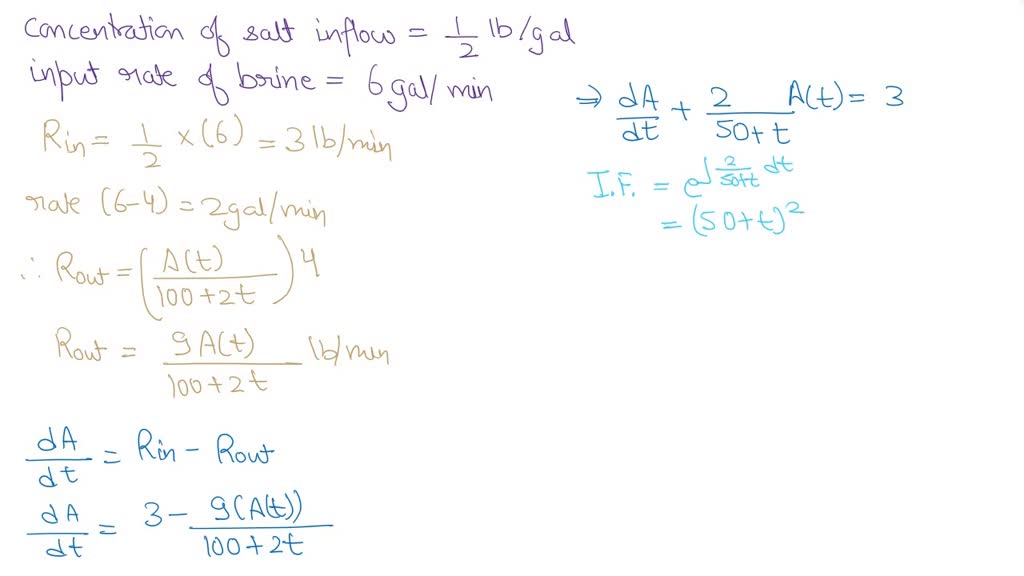 Concentration of salt inflow = 1/2 lb/gal
input rate of brine = 6 gal/min
Rin = 1/2 × (6) = 3 lb/min
rate (6-4) = 2gal/min
∴ Rout = (A(t)/(100+2t)) 4
Rout = 9A(t)/(100+2t) lb/min
dA/dt = Rin - Rout
dA/dt = 3 - 9(A(t))/(100+2t)
⇒ dA/dt + 2/(50+t) A(t) = 3
I.F. = e^∫ 2/(50+t) dt
= (50+t)²